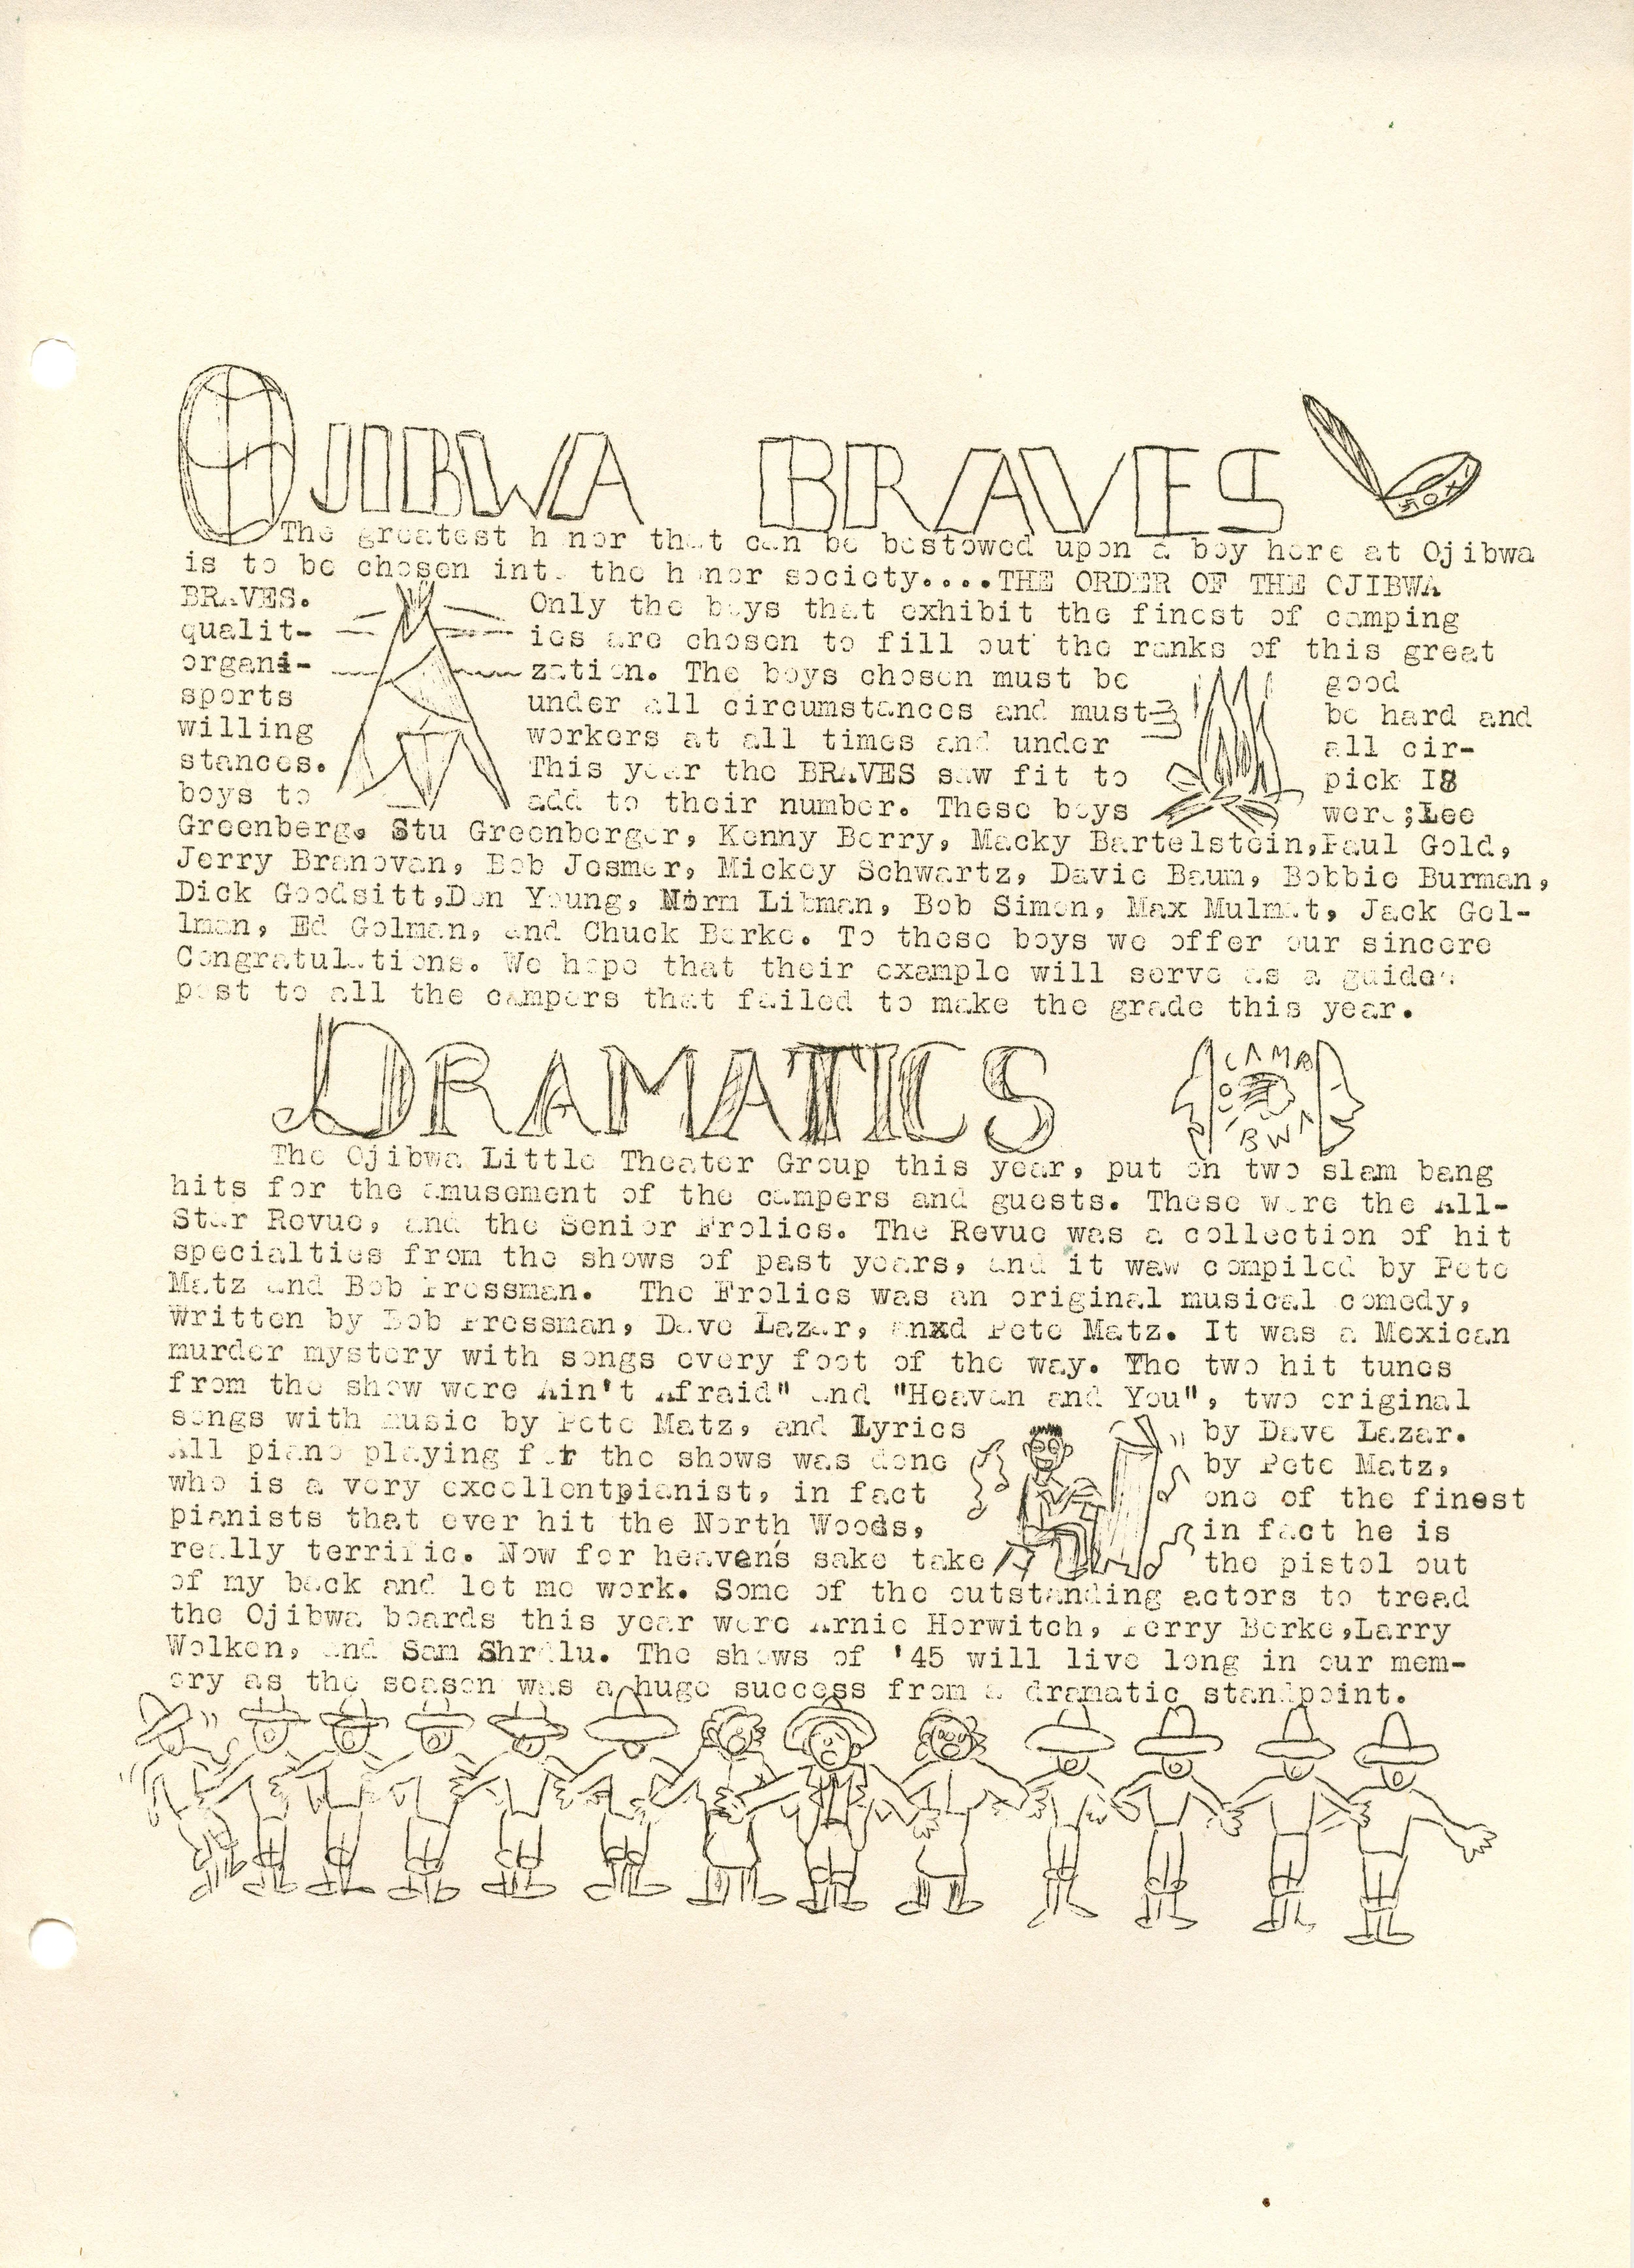 OJIBWA BRAVES
The greatest honor that can be bestowed upon a boy here at Ojibwa
is to be chosen into the honor society....THE ORDER OF THE OJIBWA
BRAVES. Only the boys that exhibit the finest of camping
qualit- ies are chosen to fill out the ranks of this great
organi- zation. The boys chosen must be good
sports under all circumstances and must be hard and
willing workers at all times and under all cir-
stances. This year the BRAVES saw fit to pick I8
boys to add to their number. These boys were;Lee
Greenberg, Stu Greenberger, Kenny Berry, Macky Bartelstein,Paul Gold,
Jerry Branovan, Bob Josmer, Mickey Schwartz, Davie Baum, Bobbie Burman,
Dick Goodsitt,Don Young, Norm Litman, Bob Simon, Max Mulmat, Jack Gol-
lman, Ed Golman, and Chuck Berke. To these boys we offer our sincere
Congratulations. We hope that their example will serve as a guide
post to all the campers that failed to make the grade this year.
DRAMATICS
CAMP
OJI
BWA
The Ojibwa Little Theater Group this year, put on two slam bang
hits for the amusement of the campers and guests. These were the All-
Star Revue, and the Senior Frolics. The Revue was a collection of hit
specialties from the shows of past years, and it waw compiled by Pete
Matz and Bob Pressman. The Frolics was an original musical comedy,
Written by Bob Pressman, Dave Lazar, anxd Pete Matz. It was a Mexican
murder mystery with songs every foot of the way. The two hit tunes
from the show were Ain't Afraid" and "Heaven and You", two original
songs with music by Pete Matz, and Lyrics by Dave Lazar.
All piano playing for the shows was done by Pete Matz,
who is a very excellentpianist, in fact one of the finest
pianists that ever hit the North Woods, in fact he is
really terrific. Now for heaven's sake take the pistol out
of my back and let me work. Some of the outstanding actors to tread
the Ojibwa boards this year were Arnie Horwitch, Perry Berke,Larry
Wolken, and Sam Shralu. The shows of '45 will live long in our mem-
ory as the season was a huge success from a dramatic standpoint.